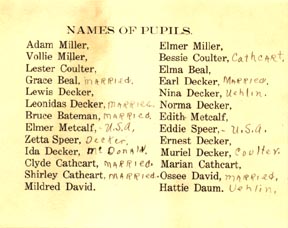 NAMES OF PUPILS.
Adam Miller, Elmer Miller,
Vollie Miller, Bessie Coulter, Cathcart,
Lester Coulter, Elma Beal,
Grace Beal, married. Earl Decker, Married.
Lewis Decker, Nina Decker, Uehlin.
Leonidas Decker, married. Norma Decker.
Bruce Bateman, married. Edith Metcalf,
Elmer Metcalf, - U.S.A, Eddie Speer, - U.S.A.
Zetta Speer, Decker, Ernest Decker,
Ida Decker, McDonald. Muriel Decker, Coulter.
Clyde Cathcart, married. Marian Cathcart,
Shirley Cathcart, married. Ossee David, married,
Mildred David. Hattie Daum. Uehlin.